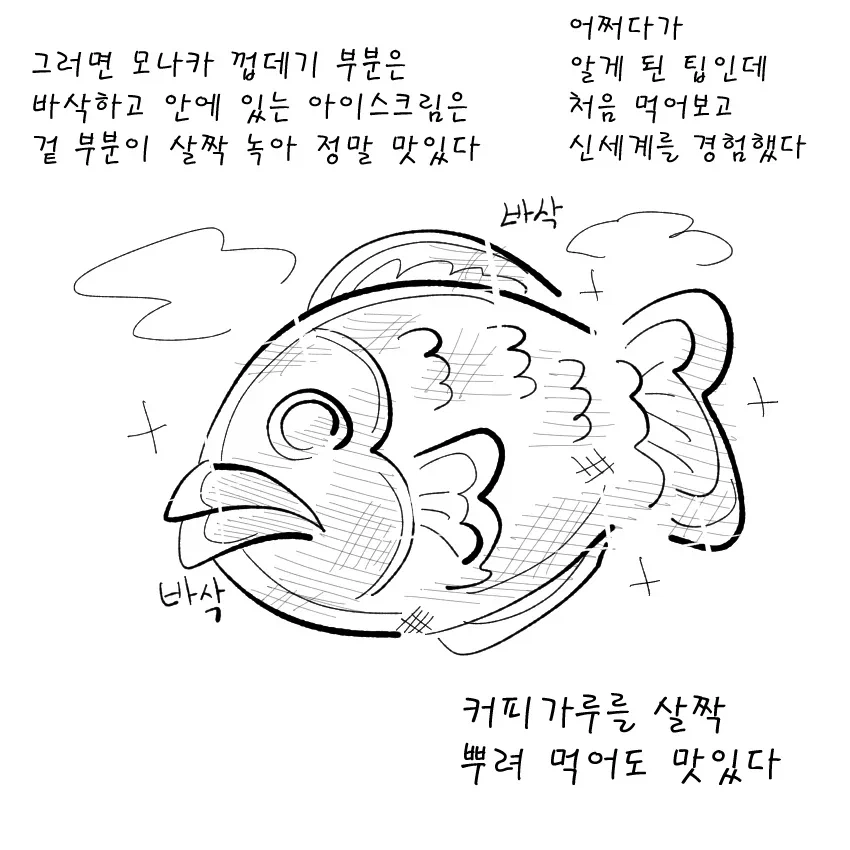 그러면 모나카 껍데기 부분은
바삭하고 안에 있는 아이스크림은
겉 부분이 살짝 녹아 정말 맛있다
어쩌다가
알게 된 팁인데
처음 먹어보고
신세계를 경험했다
바삭
바삭
커피가루를 살짝
뿌려 먹어도 맛있다